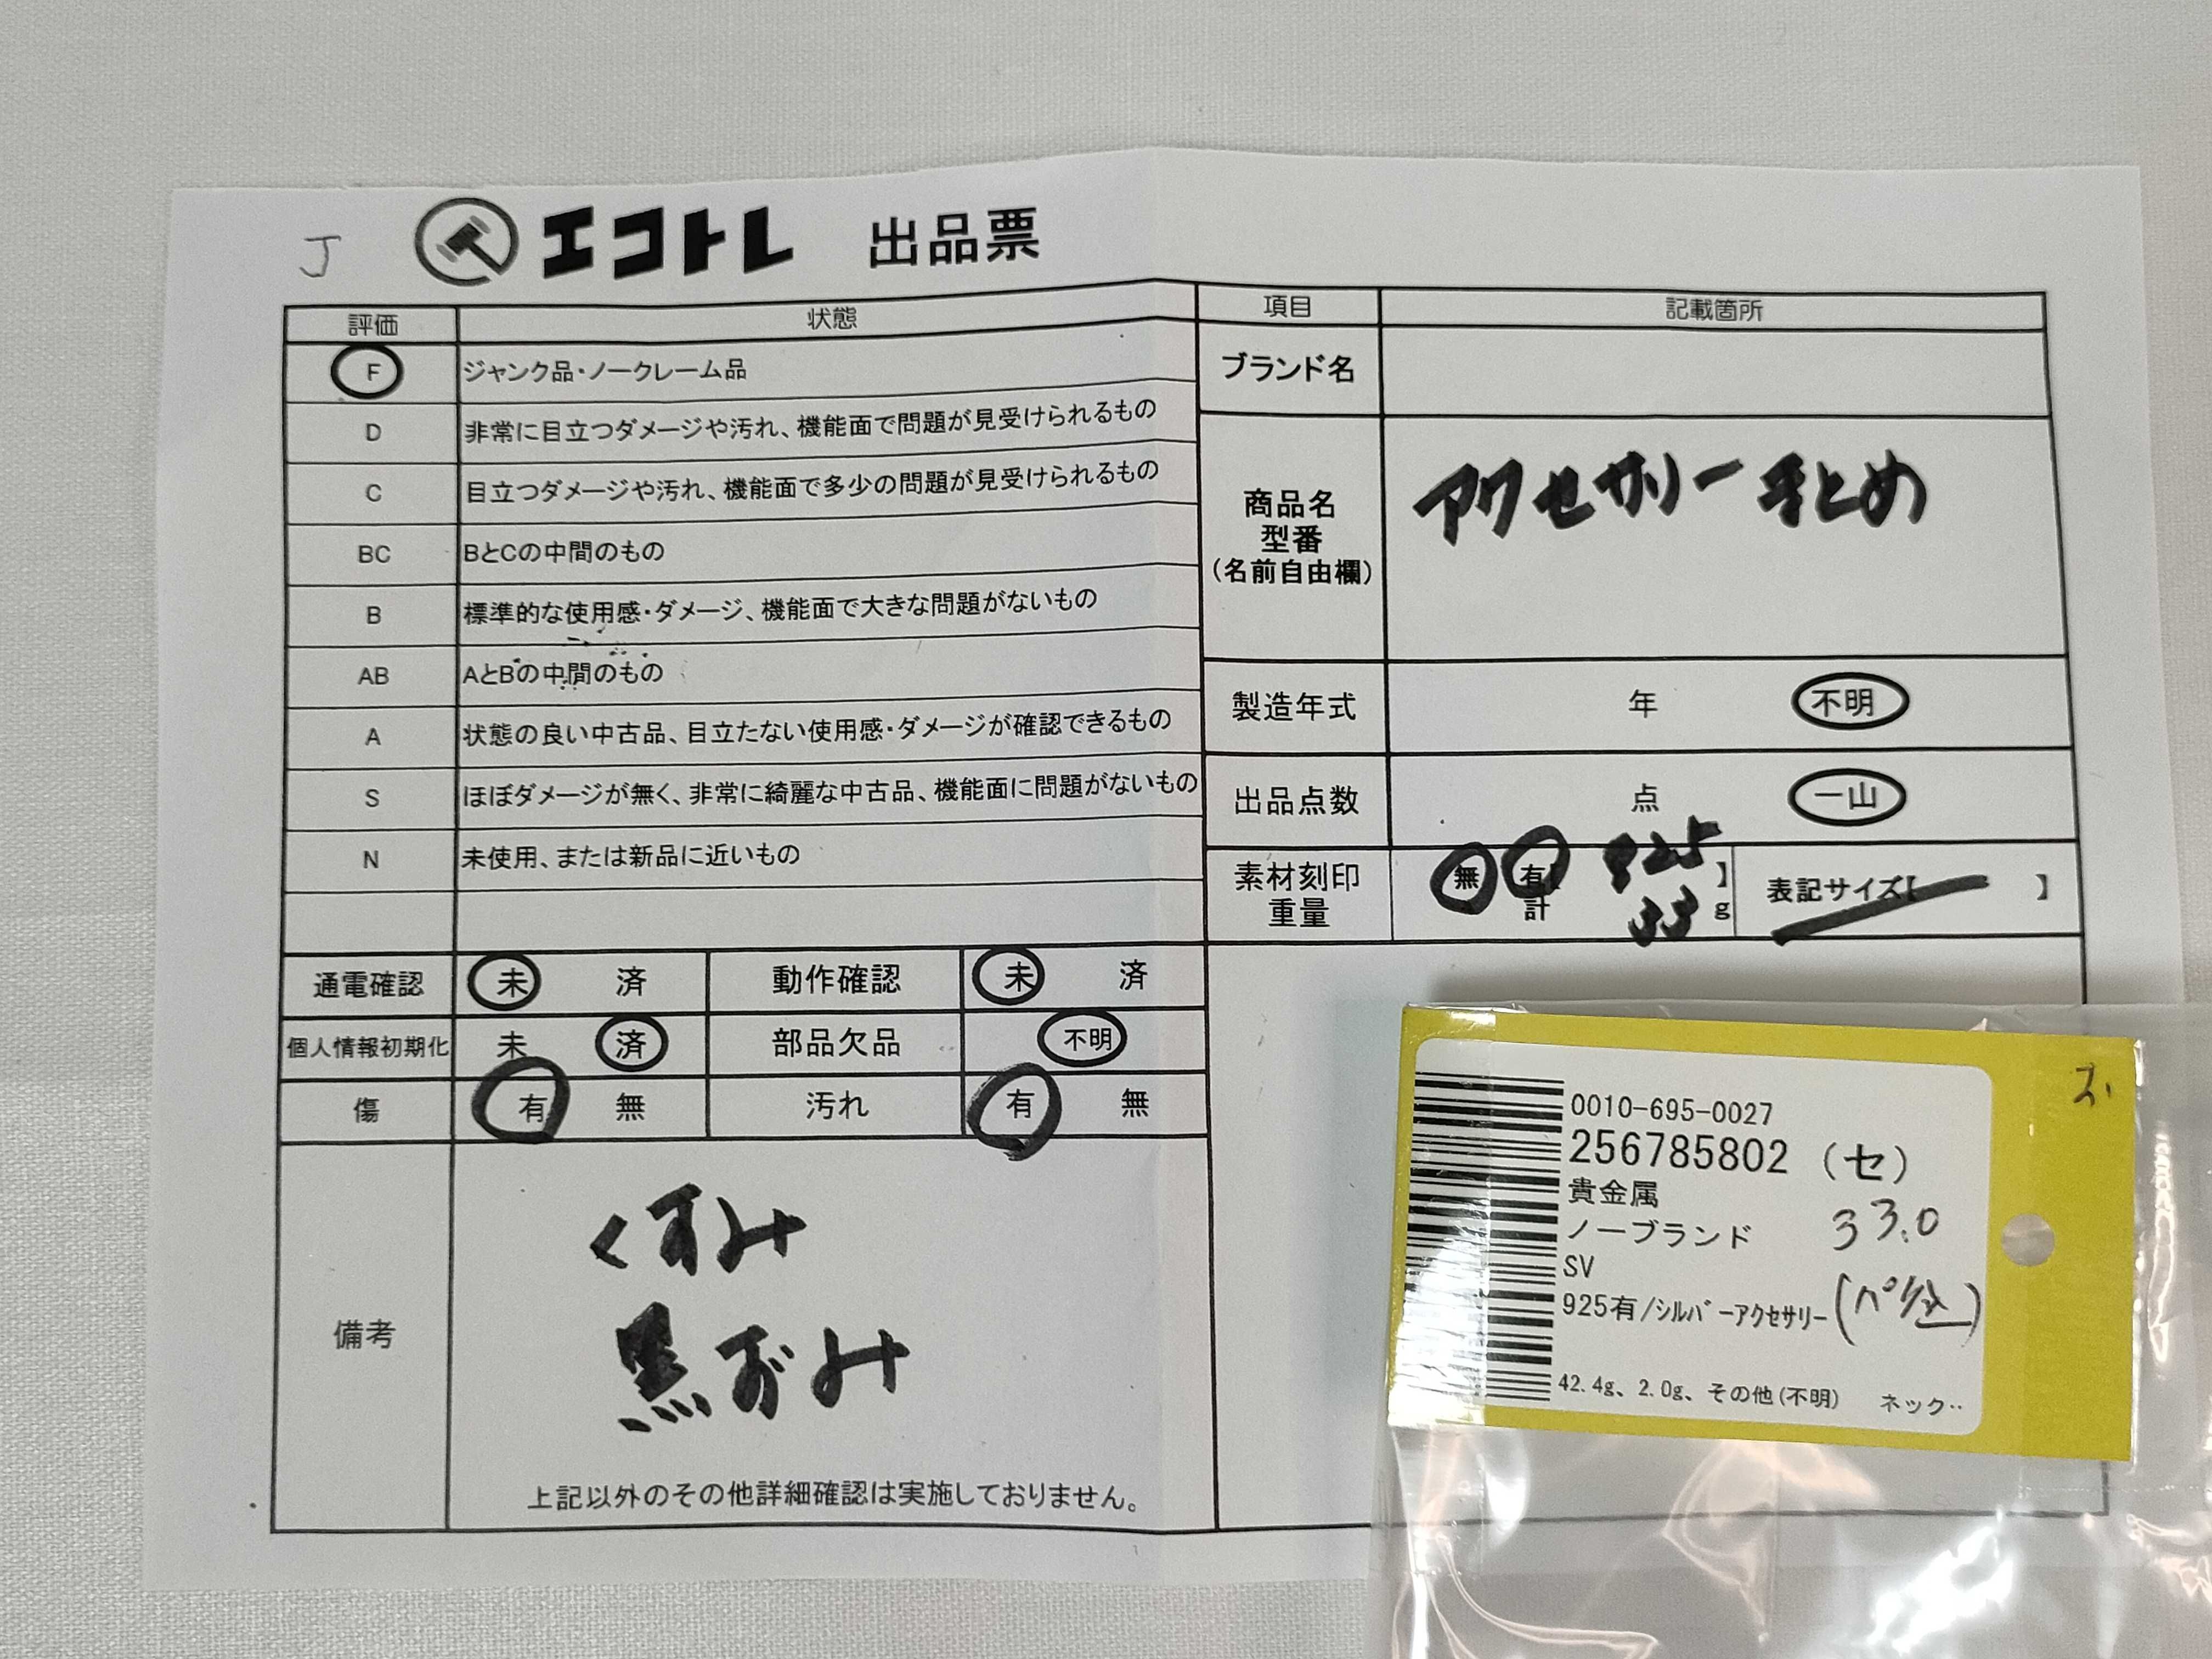 J エコトレ 出品票
評価 状態 項目 記載箇所
F ジャンク品・ノークレーム品
D 非常に目立つダメージや汚れ、機能面で問題が見受けられるもの
C 目立つダメージや汚れ、機能面で多少の問題が見受けられるもの
BC BとCの中間のもの
B 標準的な使用感・ダメージ、機能面で大きな問題がないもの
AB AとBの中間のもの
A 状態の良い中古品、目立たない使用感・ダメージが確認できるもの
S ほぼダメージが無く、非常に綺麗な中古品、機能面に問題がないもの
N 未使用、または新品に近いもの
ブランド名
商品名
型番
(名前自由欄)
アクセサリーまとめ
製造年式 年 不明
出品点数 点 一山
素材刻印 無 有 925 】 表記サイズ【 】
重量 計 33 g
通電確認 未 済 動作確認 未 済
個人情報初期化 未 済 部品欠品 不明
傷 有 無 汚れ 有 無
備考
くすみ
黒ずみ
上記以外のその他詳細確認は実施しておりません。
0010-695-0027
256785802 (セ)
貴金属
ノーブランド 33.0
SV
925有/シルバーアクセサリー
42.4g、2.0g、その他(不明) ネック‥